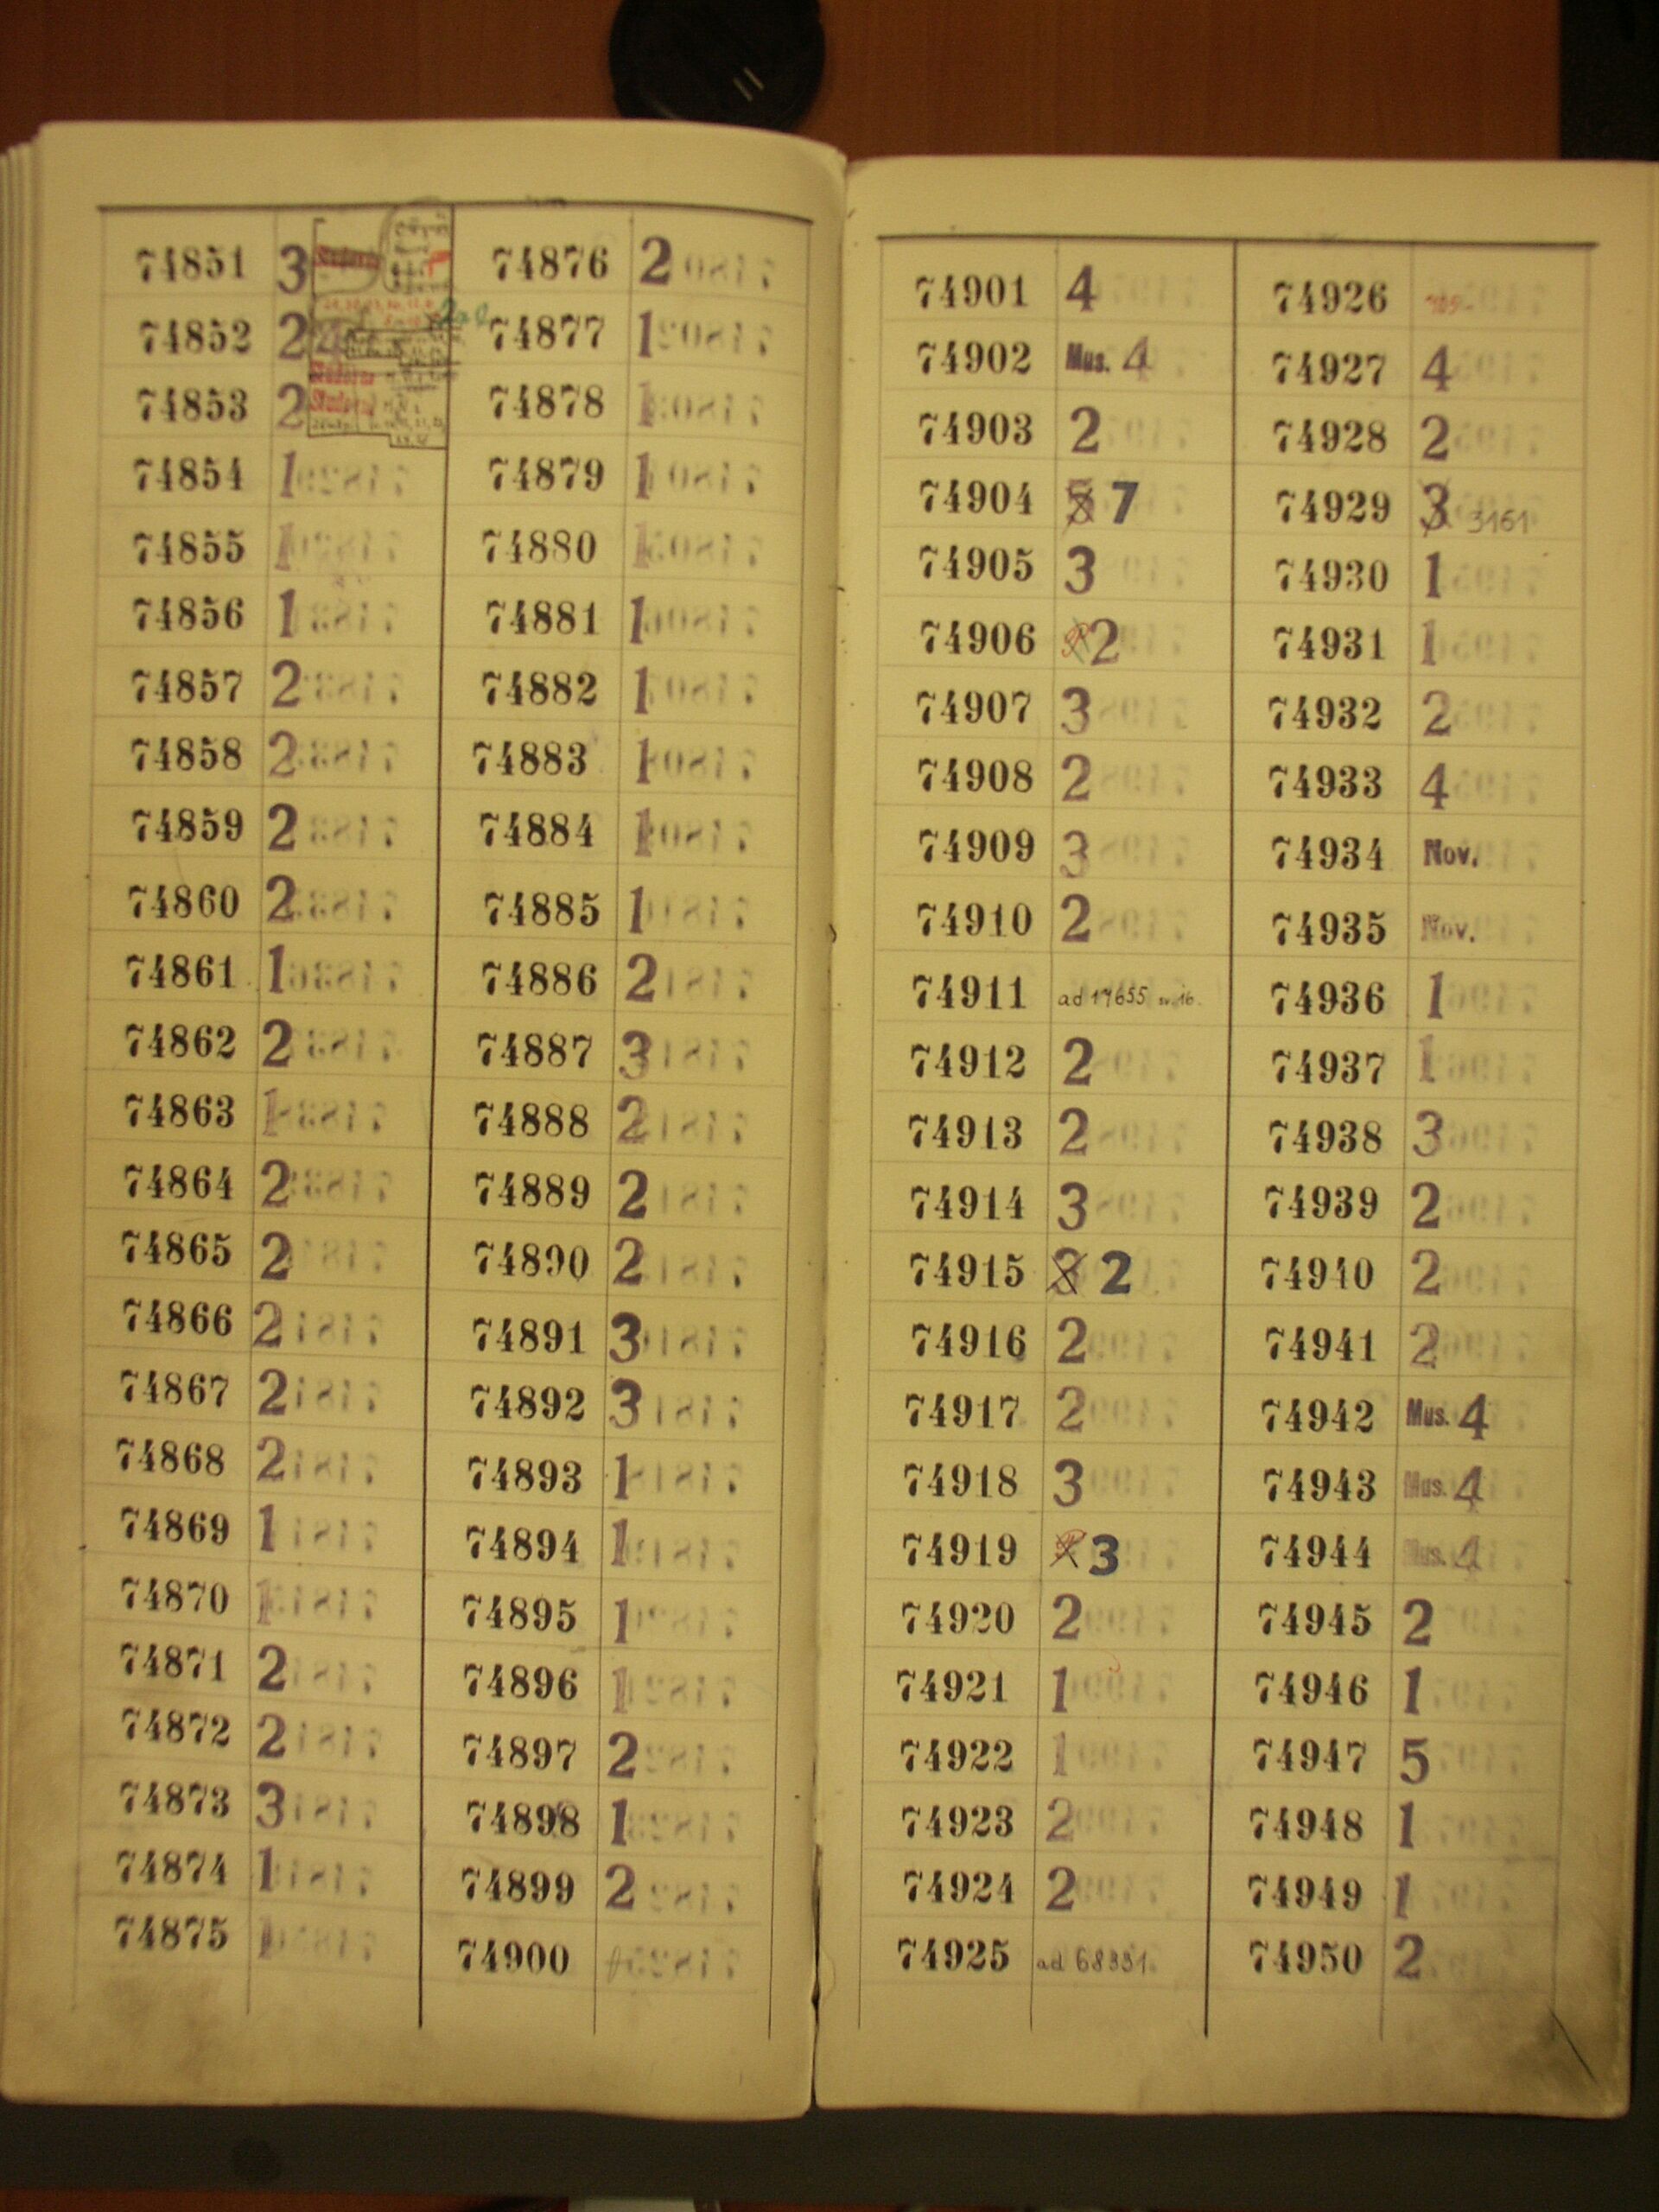 74851 3
74852 2
74853 2
74854 1
74855 1
74856 1
74857 2
74858 2
74859 2
74860 2
74861 1
74862 2
74863 1
74864 2
74865 2
74866 2
74867 2
74868 2
74869 1
74870 1
74871 2
74872 2
74873 3
74874 1
74875 1
74876 2
74877 1
74878 1
74879 1
74880 1
74881 1
74882 1
74883 1
74884 1
74885 1
74886 2
74887 3
74888 2
74889 2
74890 2
74891 3
74892 3
74893 1
74894 1
74895 1
74896 1
74897 2
74898 1
74899 2
74900
74901 4
74902 Mus. 4
74903 2
74904 5 7
74905 3
74906 2
74907 3
74908 2
74909 3
74910 2
74911 ad 17655 sv. 16.
74912 2
74913 2
74914 3
74915 3 2
74916 2
74917 2
74918 3
74919 3
74920 2
74921 1
74922 1
74923 2
74924 2
74925 ad 68331
74926
74927 4
74928 2
74929 3 3161
74930 1
74931 1
74932 2
74933 4
74934 Nov.
74935 Nov.
74936 1
74937 1
74938 3
74939 2
74940 2
74941 2
74942 Mus. 4
74943 Mus. 4
74944 Mus. 4
74945 2
74946 1
74947 5
74948 1
74949 1
74950 2